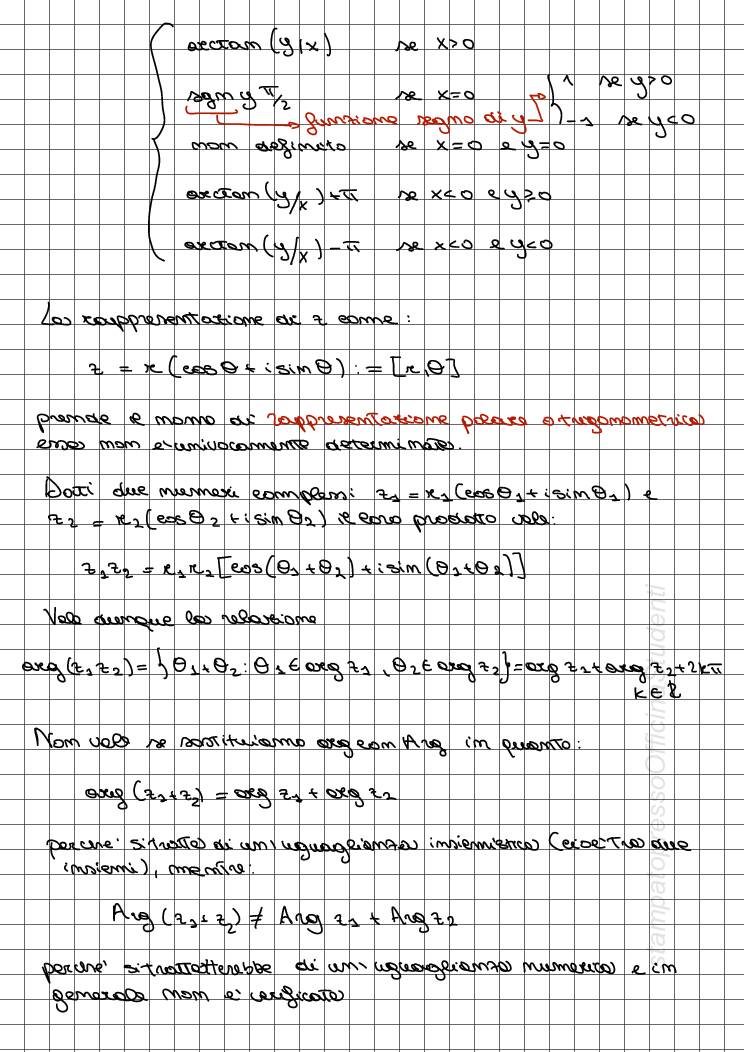 arctan(y/x) se x>0
sgn y π/2 se x=0 { 1 se y>0
funzione segno di y -1 se y<0
non definito se x=0 e y=0
arctan(y/x)+π se x<0 e y≥0
arctan(y/x)-π se x<0 e y<0
La rappresentazione di z come:
z = r(cosθ + i sinθ) := [r,θ]
prende il nome di rappresentazione polare o trigonometrica
essa non è univocamente determinata.
Dati due numeri complessi z₁ = r₁(cosθ₁ + i sinθ₁) e
z₂ = r₂(cosθ₂ + i sinθ₂) il loro prodotto vale:
z₁z₂ = r₁r₂[cos(θ₁+θ₂) + i sin(θ₁+θ₂)]
Vale dunque la relazione
arg(z₁z₂) = {θ₁+θ₂ : θ₁ ∈ arg z₁, θ₂ ∈ arg z₂} = arg z₁ + arg z₂ + 2kπ
k ∈ ℤ
Non vale se sostituiamo arg con Arg in quanto:
arg (z₁+z₂) = arg z₁ + arg z₂
perché si tratta di un'uguaglianza insiemistica (cioè tra due
insiemi), mentre:
Arg (z₁+z₂) ≠ Arg z₁ + Arg z₂
perché si tratterebbe di un'uguaglianza numerica e in
generale non è verificata
stampatopressoOfficinaStudenti